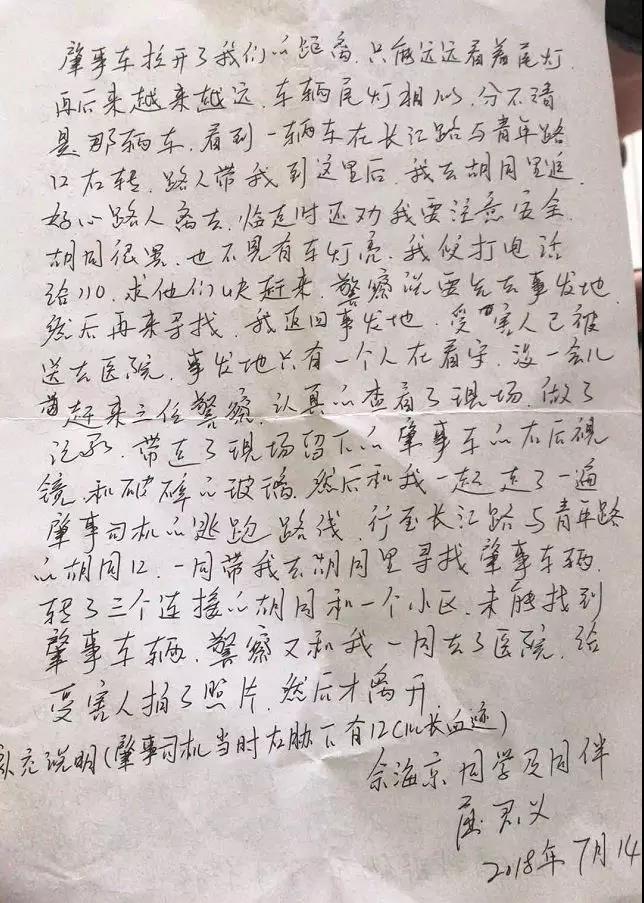 肇事车拉开了我们的距离.只能远远看着尾灯.
再后来越来越远.车辆尾灯相似.分不清
是那辆车.看到一辆车在长江路与青年路
口右转.路人带我到这里后.我去胡同里追.
好心路人离去.临走时还劝我要注意安全.
胡同很黑.也不见有车灯亮.我便打电话
给110.求他们快赶来.警察说要先去事发地.
然后再来寻找.我返回事发地.受害人已被
送去医院.事发地只有一个人在看守.没一会儿
赶来三位警察.认真的查看了现场.做了
记录.带走了现场留下的肇事车的右后视
镜.和破碎的玻璃.然后和我一起走了一遍
肇事司机的逃跑路线.行至长江路与青年路
的胡同口.一同带我去胡同里寻找肇事车辆.
转了三个连接的胡同和一个小区.未能找到
肇事车辆.警察又和我一同去了医院.给
受害人拍了照片.然后才离开.
补充说明(肇事司机当时左肋下有12cm长血迹)
佘海京同学及同伴
君义
2018年7月14